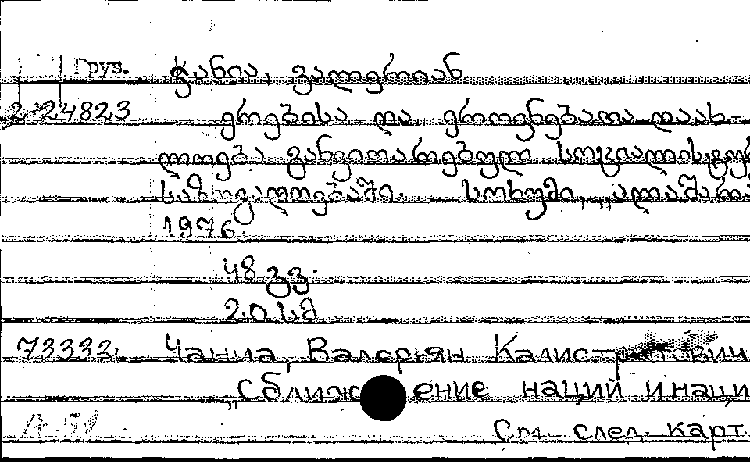 Груз. ჭანია, ვალერიან
2-24823 ერებისა და ეროვნებათა დაახ-
ლოება განვითარებულ სოციალისტურ
საზოგადოებაში. სოხუმი, „ალაშარა
1976.
48 გვ.
20 სმ
73332. Чаниа, Валерьян Калистратович
„Сближение наций и наци
См. след. карт.